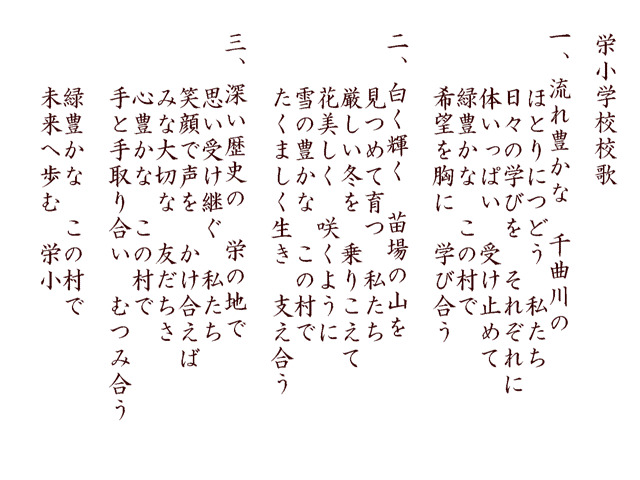 栄小学校校歌
一、流れ豊かな　千曲川の
ほとりにつどう　私たち
日々の学びを　それぞれに
体いっぱい　受け止めて
緑豊かな　この村で
希望を胸に　学び合う
二、白く輝く　苗場の山を
見つめて育つ　私たち
厳しい冬を　乗りこえて
花美しく　咲くように
雪の豊かな　この村で
たくましく生き　支え合う
三、深い歴史の　栄の地で
思い受け継ぐ　私たち
笑顔で声を　かけ合えば
みな大切な　友だちさ
心豊かな　この村で
手と手取り合い　むつみ合う
緑豊かな　この村で
未来へ歩む　栄小